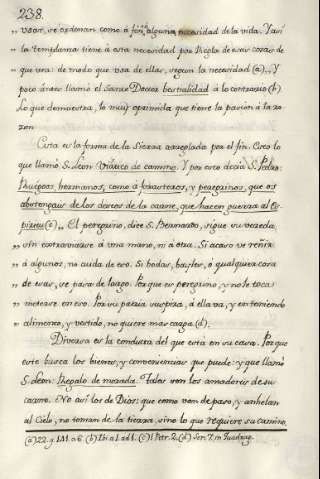 238.
„ usar, se ordenan como á fin, á alguna necesidad de la vida. Y así
„ la templanza tiene á esta necesidad por Regla de esas cosas de
„ que usa: de modo que usa de ellas, segun la necesidad (a)„. Y
poco antes llamo el Santo Doctor bestialidad á lo contrario (b).
Lo que demuestra, lo muy oprimida que tiene la pasion á la ra-
zon.
Esta es la forma de la Sierra arreglada por el fin. Esto lo
que llamó S. Leon Viático de camino. Y por esto decia S. Pedro:
Ruegoos hermanos, como á forasteros, y peregrinos, que os
abstengais de los deseos de la carne, que hacen guerra al Es-
píritu (c)„. El peregrino, dice S. Bernardo, sigue su vereda,
„ sin extraviarse á una mano, ni á otra. Si acaso ve reñir
„ á algunos, no cuida de eso. Si bodas, bayles, ó qualquiera cosa
„ de esas, se pasa de largo. Por que es peregrino, y no le toca
„ meterse en eso. Por su patria suspira, á ella va, y en teniendo
„ alimento, y vestido, no quiere mas carga (d).
Diversa es la conducta del que esta en su casa. Por que
este busca los bienes, y conveniencias que puede: y que llamó
S. Leon: Regalo de morada. Tales son los amadores de su
carne. No así los de Dios: que como van de paso, y anhelan
al Cielo, no toman de la tierra, sino lo que requiere su camino.
(a) 22. q. 141. a 6. (b) Ibi a 1. ad 1. (c) 1 Petr. 2. (d) Ser. 7. in Quadrag.